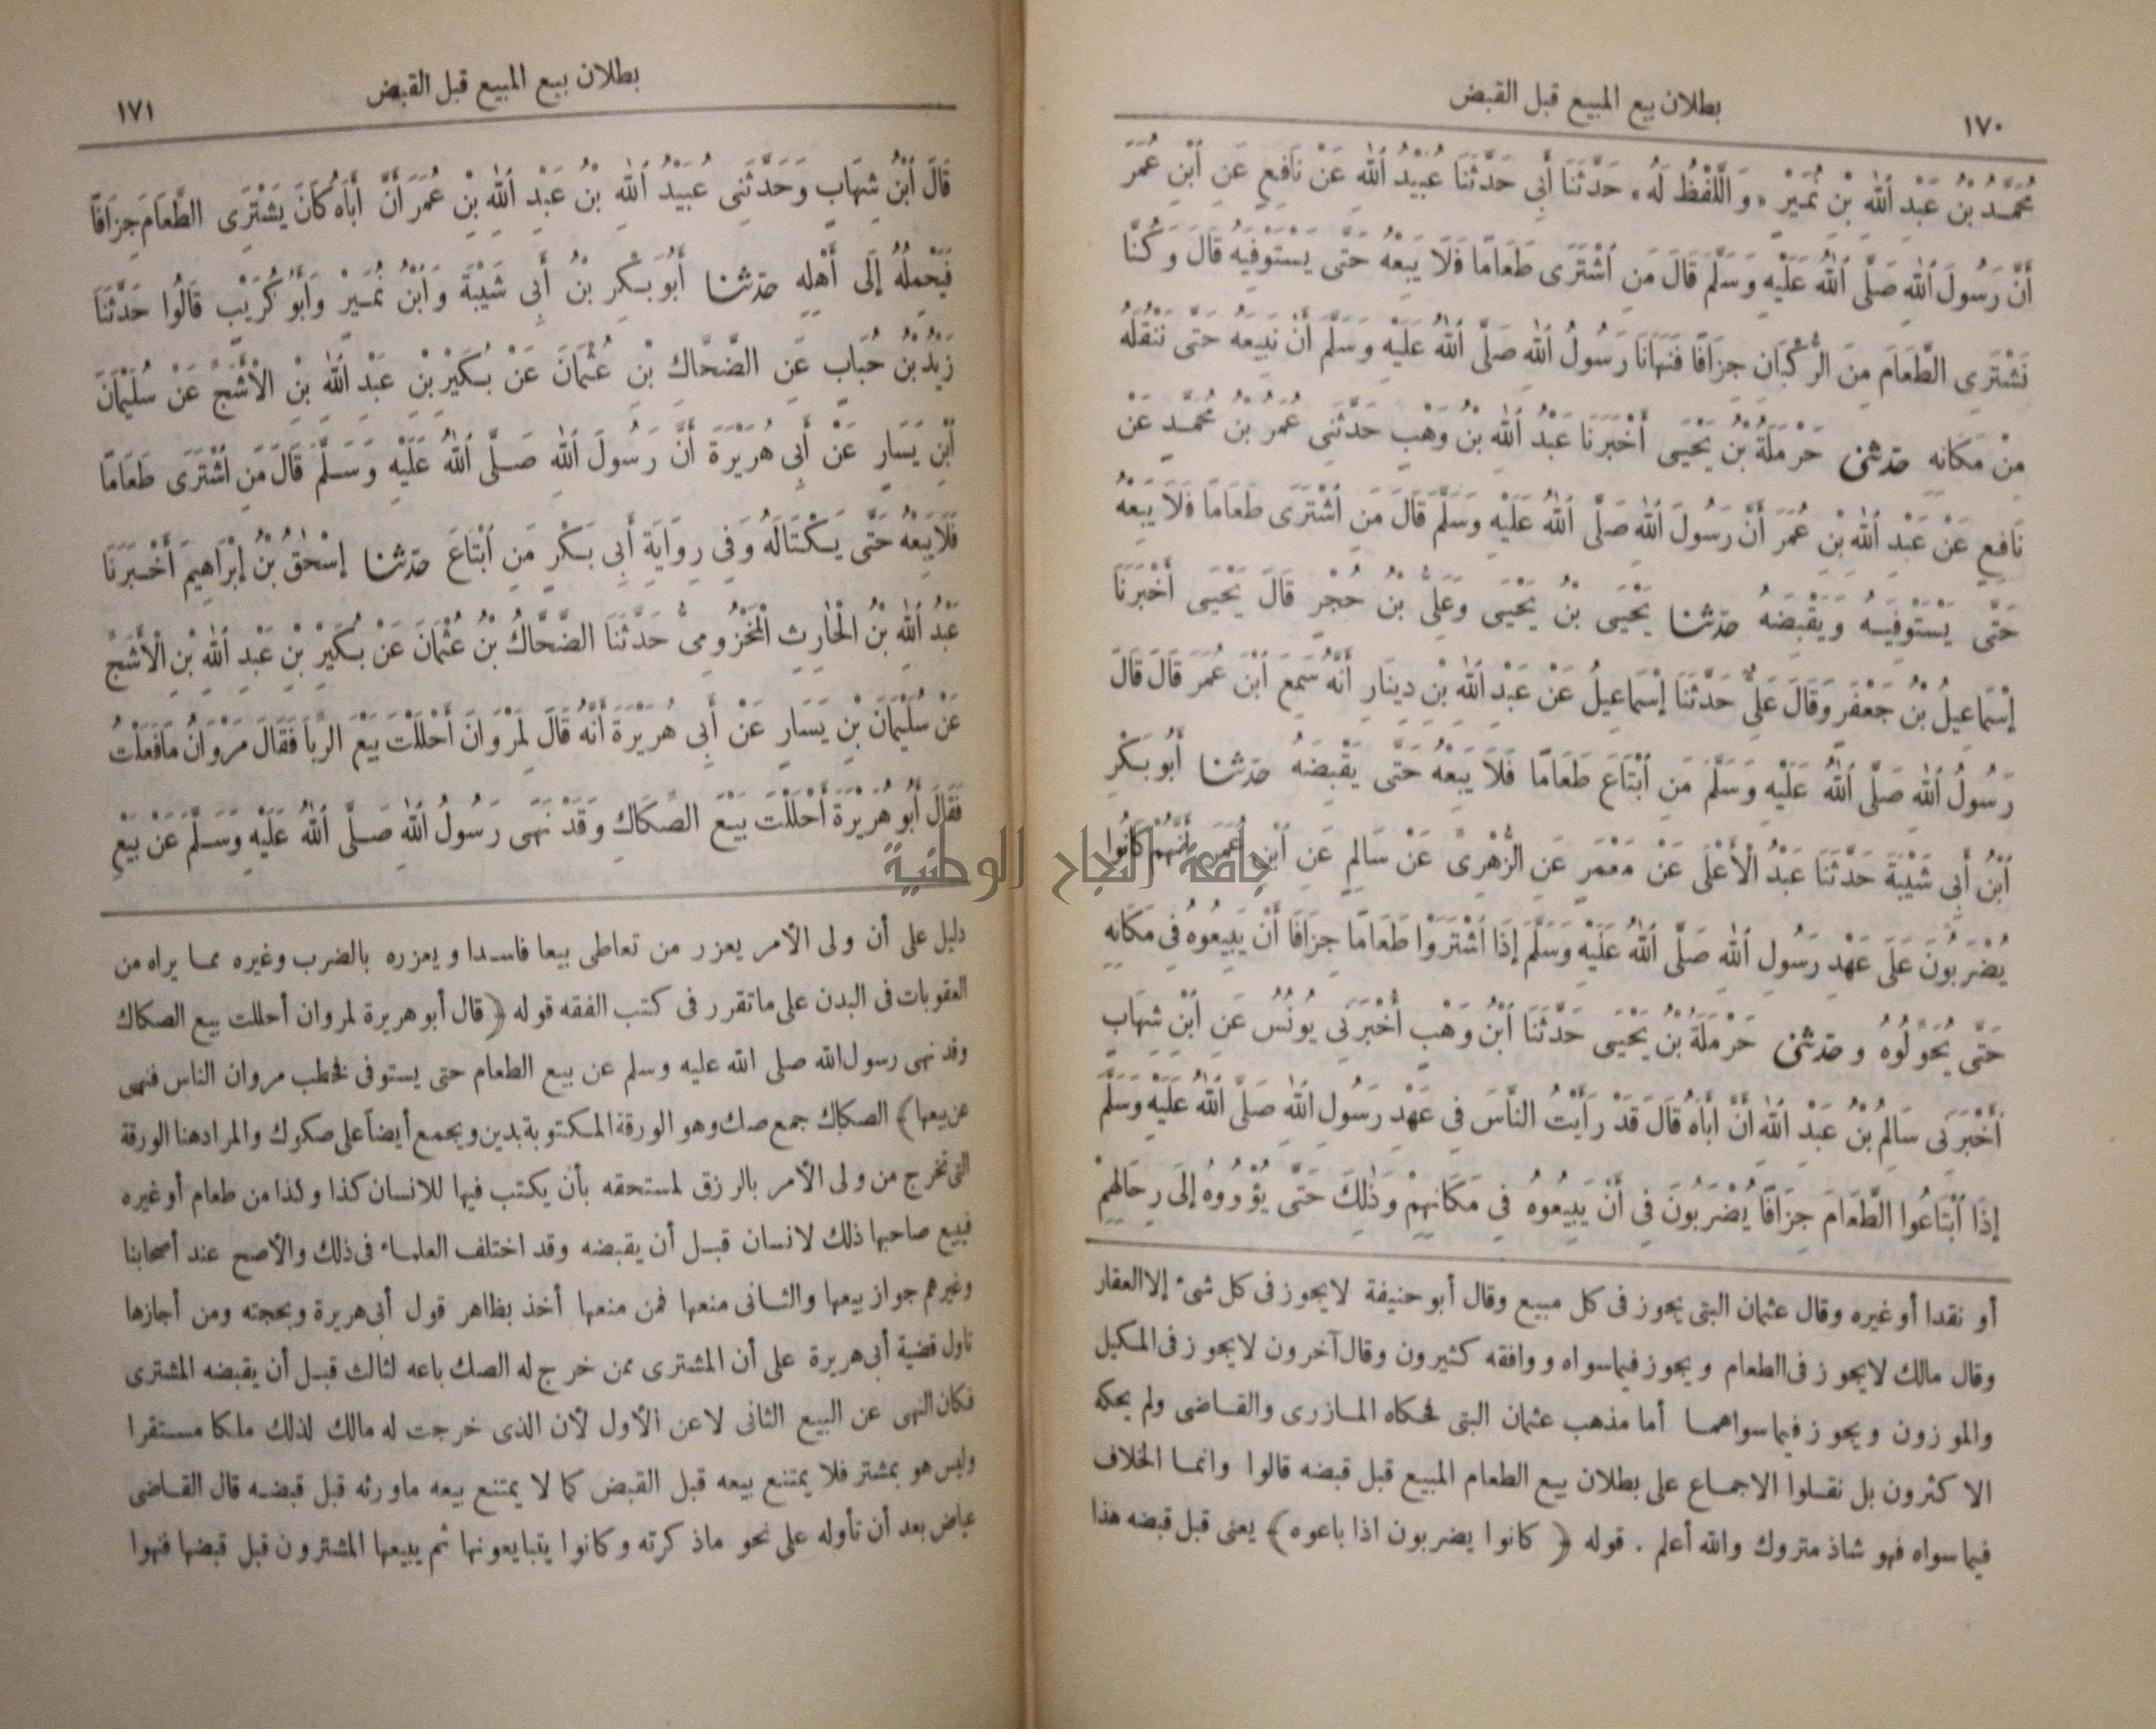 ١٧٠
بطلان بيع المبيع قبل القبض
مُحَمَّدُ بْنُ عَبْدِ اللهِ بْنِ نُمَيْرٍ «وَاللَّفْظُ لَهُ» حَدَّثَنَا أَبِي حَدَّثَنَا عُبَيْدُ اللهِ عَنْ نَافِعٍ عَنِ ابْنِ عُمَرَ
أَنَّ رَسُولَ اللهِ صَلَّى اللهُ عَلَيْهِ وَسَلَّمَ قَالَ مَنِ اشْتَرَى طَعَامًا فَلَا يَبِعْهُ حَتَّى يَسْتَوْفِيَهُ قَالَ وَكُنَّا
نَشْتَرِى الطَّعَامَ مِنَ الرُّكْبَانِ جِزَافًا فَنَهَانَا رَسُولُ اللهِ صَلَّى اللهُ عَلَيْهِ وَسَلَّمَ أَنْ نَبِيعَهُ حَتَّى نَنْقُلَهُ
مِنْ مَكَانِهِ حدثنى حَرْمَلَةُ بْنُ يَحْيَى أَخْبَرَنَا عَبْدُ اللهِ بْنُ وَهْبٍ حَدَّثَنِى عُمَرُ بْنُ مُحَمَّدٍ عَنْ
نَافِعٍ عَنْ عَبْدِ اللهِ بْنِ عُمَرَ أَنَّ رَسُولَ اللهِ صَلَّى اللهُ عَلَيْهِ وَسَلَّمَ قَالَ مَنِ اشْتَرَى طَعَامًا فَلَا يَبِعْهُ
حَتَّى يَسْتَوْفِيَهُ وَيَقْبِضَهُ حدثنا يَحْيَى بْنُ يَحْيَى وَعَلِىُّ بْنُ حُجْرٍ قَالَ يَحْيَى أَخْبَرَنَا
إِسْمَاعِيلُ بْنُ جَعْفَرٍ وَقَالَ عَلِىٌّ حَدَّثَنَا إِسْمَاعِيلُ عَنْ عَبْدِ اللهِ بْنِ دِينَارٍ أَنَّهُ سَمِعَ ابْنَ عُمَرَ قَالَ قَالَ
رَسُولُ اللهِ صَلَّى اللهُ عَلَيْهِ وَسَلَّمَ مَنِ ابْتَاعَ طَعَامًا فَلَا يَبِعْهُ حَتَّى يَقْبِضَهُ حدثنا أَبُو بَكْرِ
ابْنُ أَبِى شَيْبَةَ حَدَّثَنَا عَبْدُ الْأَعْلَى عَنْ مَعْمَرٍ عَنِ الزُّهْرِىِّ عَنْ سَالِمٍ عَنِ ابْنِ عُمَرَ أَنَّهُمْ كَانُوا
يُضْرَبُونَ عَلَى عَهْدِ رَسُولِ اللهِ صَلَّى اللهُ عَلَيْهِ وَسَلَّمَ إِذَا اشْتَرَوْا طَعَامًا جِزَافًا أَنْ يَبِيعُوهُ فِى مَكَانِهِ
حَتَّى يُحَوِّلُوهُ وحدثنى حَرْمَلَةُ بْنُ يَحْيَى حَدَّثَنَا ابْنُ وَهْبٍ أَخْبَرَنِى يُونُسُ عَنِ ابْنِ شِهَابٍ
أَخْبَرَنِى سَالِمُ بْنُ عَبْدِ اللهِ أَنَّ أَبَاهُ قَالَ قَدْ رَأَيْتُ النَّاسَ فِى عَهْدِ رَسُولِ اللهِ صَلَّى اللهُ عَلَيْهِ وَسَلَّمَ
إِذَا ابْتَاعُوا الطَّعَامَ جِزَافًا يُضْرَبُونَ فِى أَنْ يَبِيعُوهُ فِى مَكَانِهِمْ وَذٰلِكَ حَتَّى يُؤْوُوهُ إِلَى رِحَالِهِمْ
أو نقدا أو غيره وقال عثمان البتى يجوز فى كل مبيع وقال أبو حنيفة لا يجوز فى كل شىء إلا العقار
وقال مالك لايجوز فى الطعام ويجوز فيما سواه ووافقه كثيرون وقال آخرون لايجوز فى المكيل
والموزون ويجوز فيما سواهما أما مذهب عثمان البتى فحكاه المازرى والقاضى ولم يحكه
الاكثرون بل نقلوا الاجماع على بطلان بيع الطعام المبيع قبل قبضه قالوا وانما الخلاف
فيما سواه فهو شاذ متروك والله أعلم . قوله ﴿كانوا يضربون اذا باعوه﴾ يعنى قبل قبضه هذا
بطلان بيع المبيع قبل القبض
١٧١
قَالَ ابْنُ شِهَابٍ وَحَدَّثَنِى عُبَيْدُ اللهِ بْنُ عَبْدِ اللهِ بْنِ عُمَرَ أَنَّ أَبَاهُ كَانَ يَشْتَرِى الطَّعَامَ جِزَافًا
فَيَحْمِلُهُ إِلَى أَهْلِهِ حدثنا أَبُو بَكْرِ بْنُ أَبِى شَيْبَةَ وَابْنُ نُمَيْرٍ وَأَبُو كُرَيْبٍ قَالُوا حَدَّثَنَا
زَيْدُ بْنُ حُبَابٍ عَنِ الضَّحَّاكِ بْنِ عُثْمَانَ عَنْ بُكَيْرِ بْنِ عَبْدِ اللهِ بْنِ الْأَشَجِّ عَنْ سُلَيْمَانَ
ابْنِ يَسَارٍ عَنْ أَبِى هُرَيْرَةَ أَنَّ رَسُولَ اللهِ صَلَّى اللهُ عَلَيْهِ وَسَلَّمَ قَالَ مَنِ اشْتَرَى طَعَامًا
فَلَا يَبِعْهُ حَتَّى يَكْتَالَهُ وَفِى رِوَايَةِ أَبِى بَكْرٍ مَنِ ابْتَاعَ حدثنا إِسْحٰقُ بْنُ إِبْرَاهِيمَ أَخْبَرَنَا
عَبْدُ اللهِ بْنُ الْحَارِثِ الْمَخْزُومِىُّ حَدَّثَنَا الضَّحَّاكُ بْنُ عُثْمَانَ عَنْ بُكَيْرِ بْنِ عَبْدِ اللهِ بْنِ الْأَشَجِّ
عَنْ سُلَيْمَانَ بْنِ يَسَارٍ عَنْ أَبِى هُرَيْرَةَ أَنَّهُ قَالَ لِمَرْوَانَ أَحْلَلْتَ بَيْعَ الرِّبَا فَقَالَ مَرْوَانُ مَافَعَلْتُ
فَقَالَ أَبُو هُرَيْرَةَ أَحْلَلْتَ بَيْعَ الصِّكَاكِ وَقَدْ نَهَى رَسُولُ اللهِ صَلَّى اللهُ عَلَيْهِ وَسَلَّمَ عَنْ بَيْعِ
دليل على أن ولى الأمر يعزر من تعاطى بيعا فاسدا ويعزره بالضرب وغيره مما يراه من
العقوبات فى البدن على ماتقرر فى كتب الفقه قوله ﴿قال أبو هريرة لمروان أحللت بيع الصكاك
وقد نهى رسول الله صلى الله عليه وسلم عن بيع الطعام حتى يستوفى فخطب مروان الناس فنهى
عن بيعها﴾ الصكاك جمع صك وهو الورقة المكتوبة بدين ويجمع أيضا على صكوك والمراد هنا الورقة
التى تخرج من ولى الأمر بالرزق لمستحقه بأن يكتب فيها للانسان كذا وكذا من طعام أو غيره
فيبيع صاحبها ذلك لانسان قبل أن يقبضه وقد اختلف العلماء فى ذلك والأصح عند أصحابنا
وغيرهم جواز بيعها والثانى منعها فمن منعها أخذ بظاهر قول أبى هريرة وبحجته ومن أجازها
تأول قضية أبى هريرة على أن المشترى ممن خرج له الصك باعه لثالث قبل أن يقبضه المشترى
فكان النهى عن البيع الثانى لاعن الأول لأن الذى خرجت له مالك لذلك ملكا مستقرا
وليس هو بمشتر فلا يمتنع بيعه قبل القبض كما لا يمتنع بيعه ماورثه قبل قبضه قال القاضى
عياض بعد أن تأوله على نحو ماذكرته وكانوا يتبايعونها ثم يبيعها المشترون قبل قبضها فنهوا
جامعة النجاح الوطنية